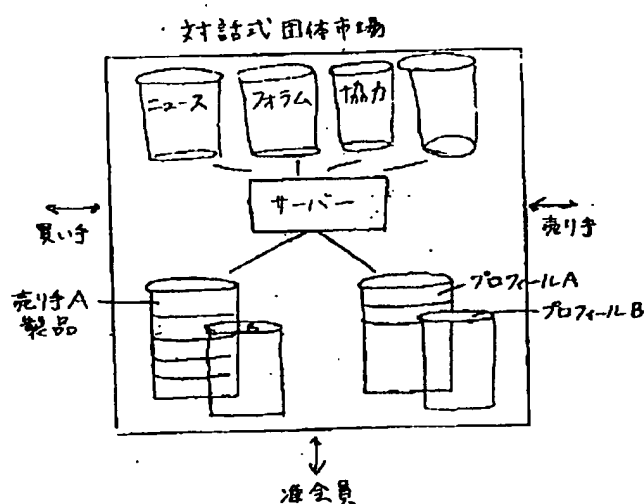 対話式団体市場
ニュース
フォラム
協力
サーバー
買い手
売り手
売り手A
製品
プロフィールA
プロフィールB
准会員